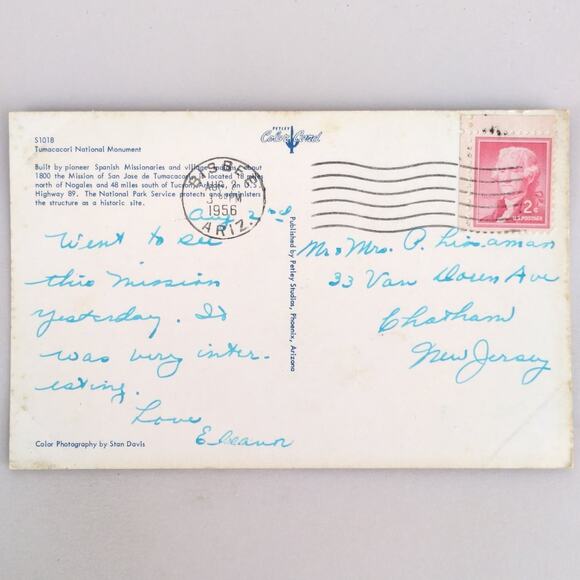 S1018
Tumacacori National Monument
Built by pioneer Spanish Missionaries and village Indians about
1800 the Mission of San Jose de Tumacacori is located 18 miles
north of Nogales and 48 miles south of Tucson, Arizona, on U.S.
Highway 89. The National Park Service protects and administers
the structure as a historic site.
PETLEY
Color Card
BISBEE
AUG 2
PM
1956
ARIZ.
2¢
U.S. POSTAGE
Aug 2nd
Went to see
this Mission
yesterday. It
was very inter-
esting.
Love
Eleanor
Color Photography by Stan Davis
Published by Petley Studios, Phoenix, Arizona
Mr & Mrs. P. Lissaman
33 Van Doren Ave
Chatham
New Jersey